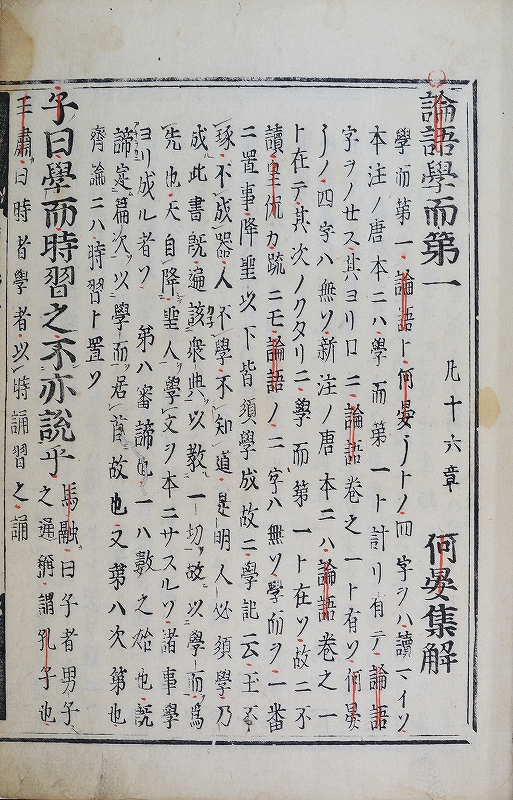 論語學而第一 凡十六章 何晏集解
學而第一論語ト何晏ーートノ四字ヲハ讀マイソ
本注ノ唐本ニハ學而第一ト計リ有テ論語
字ヲノセス其ヨリ口ニ論語巻之一ト有ソ何晏
ーーノ四字ハ無ソ新注ノ唐本ニハ論語巻之一
ト在テ其次ノクタリニ學而第一ト在ソ故ニ不
讀皇侃カ疏ニモ論語ノ二字ハ無ソ學而ヲ一番
ニ置事降聖以下皆須學成故ニ學記云玉不
琢不成器人不學不知道是明人必須學乃
成此書既遍該衆典以教一切故以學而爲
先也天自降聖人學文ヲ本ニサスルソ諸事學
ヨリ成ル者ソ 第ハ審諦也一ハ數之始也既
諦定篇次以學而居首故也又第ハ次第也
齊論ニハ時習ト置ソ
子曰學而時習之不亦説乎 馬融曰子者男子
之通稱謂孔子也
王肅曰時者學者以時誦習之誦